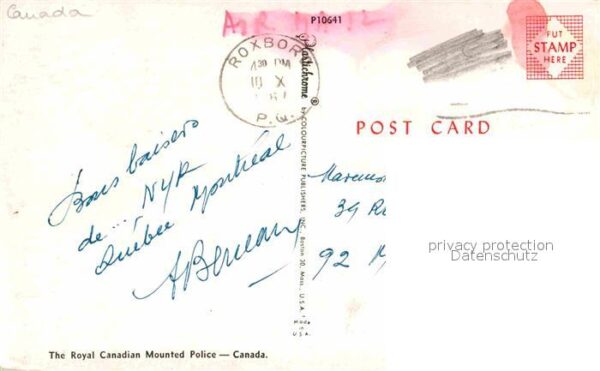 Canada
AIR MAIL
P10641
ROXBORO
430 PM
10 X
P.Q.
PUT
STAMP
HERE
POST CARD
Plastichrome ® by COLOURPICTURE PUBLISHERS, INC., Boston 30, Mass., U.S.A.
MADE
U.S.A.
Bons baisers
de... NYK
Québec Montréal
39
92
privacy protection
Datenschutz
The Royal Canadian Mounted Police — Canada.